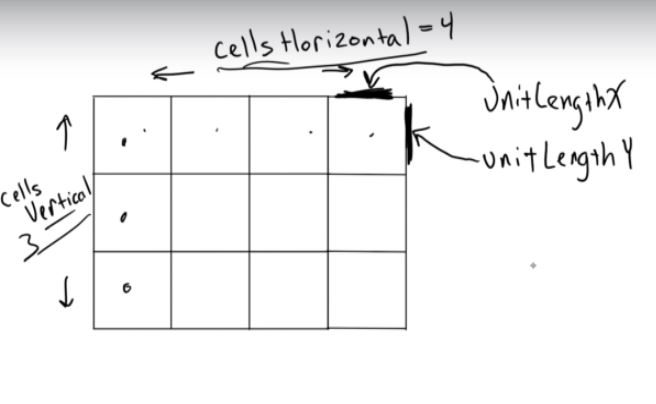 cells Horizontal = 4
UnitLengthX
unitLengthY
cells
Vertical
3